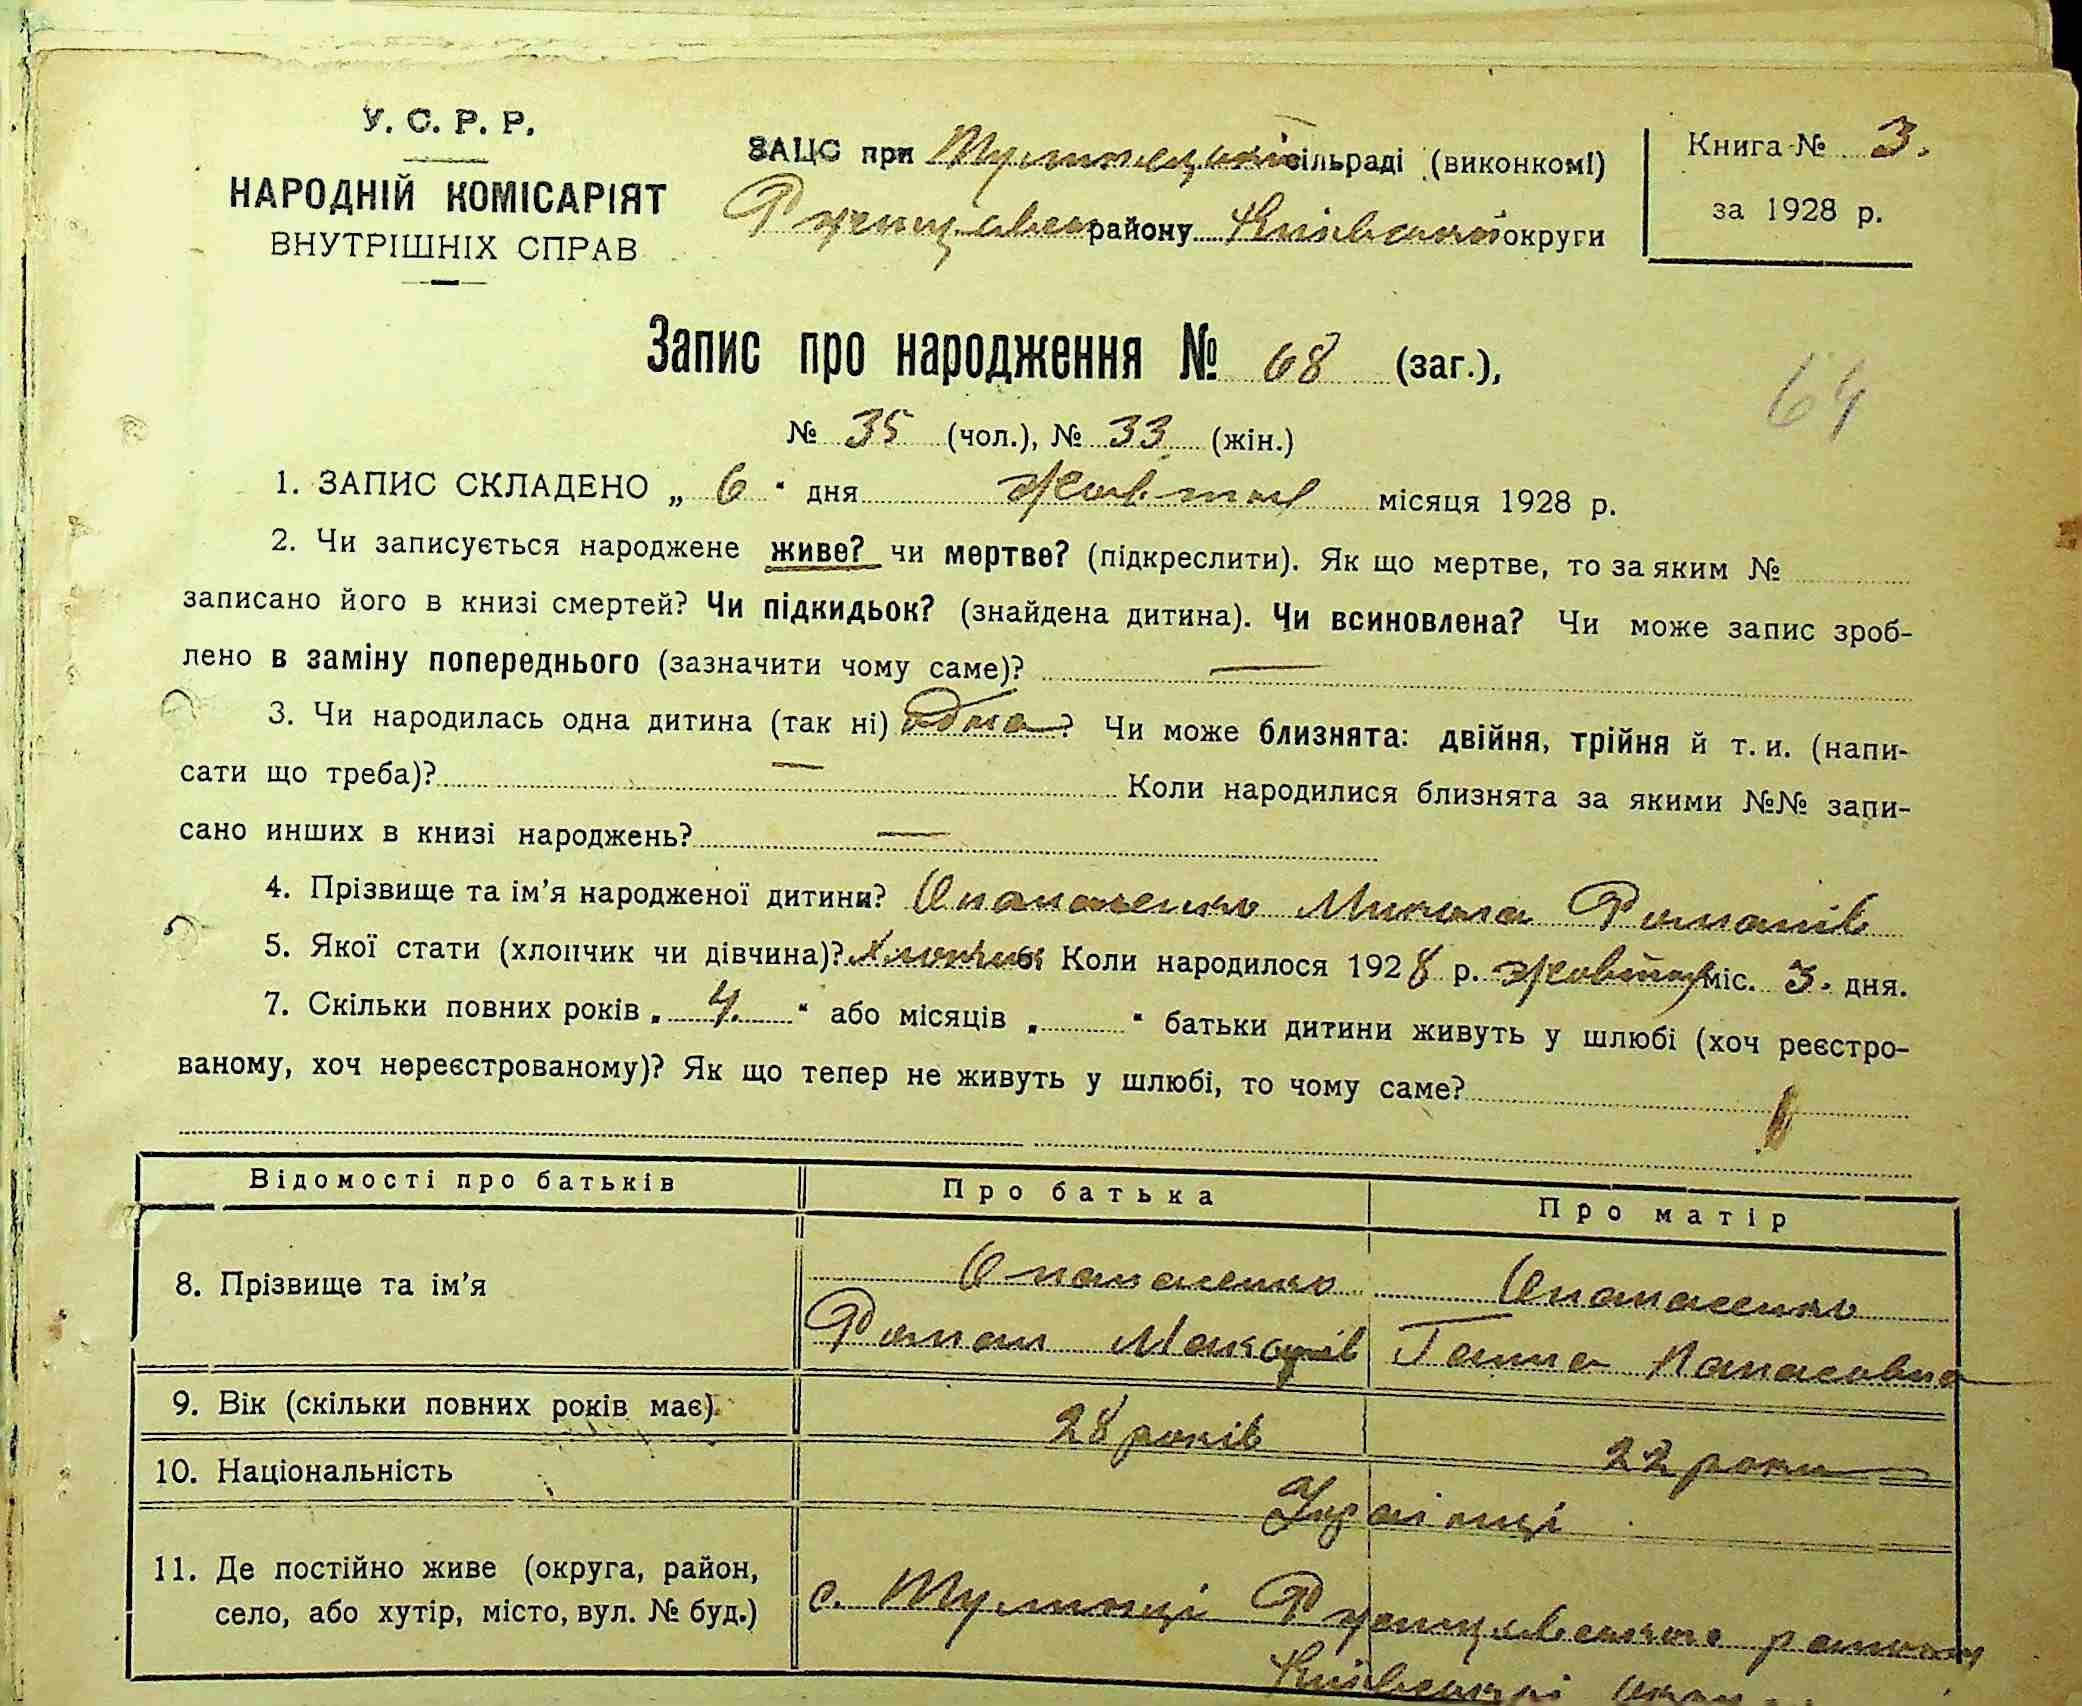 У. С. Р. Р.
НАРОДНІЙ КОМІСАРІЯТ
ВНУТРІШНІХ СПРАВ
ЗАЦС при Тулинецькій сільраді (виконкомі)
Ржищевськ району Київської округи
Книга № 3.
за 1928 р.
Запис про народження № 68 (заг.),
64
№ 35 (чол.), № 33 (жін.)
1. ЗАПИС СКЛАДЕНО „ 6 “ дня жовтня місяця 1928 р.
2. Чи записується народжене живе? чи мертве? (підкреслити). Як що мертве, то за яким №
записано його в книзі смертей? Чи підкидьок? (знайдена дитина). Чи всиновлена? Чи може запис зроб-
лено в заміну попереднього (зазначити чому саме)? —
3. Чи народилась одна дитина (так ні) одна? Чи може близнята: двійня, трійня й т. и. (напи-
сати що треба)? — Коли народилися близнята за якими №№ запи-
сано инших в книзі народжень? —
4. Прізвище та ім'я народженої дитини? Опанасенко Микола Романів
5. Якої стати (хлопчик чи дівчина)? хлопчик 6. Коли народилося 1928 р. жовтня міс. 3. дня.
7. Скільки повних років „ 4. “ або місяців „ “ батьки дитини живуть у шлюбі (хоч реєстро-
ваному, хоч нереєстрованому)? Як що тепер не живуть у шлюбі, то чому саме?
Відомості про батьків Про батька Про матір
8. Прізвище та ім'я Опанасенко Опанасенко
Роман Макарів Ганна Панасовна
9. Вік (скільки повних років має). 28 років 22 роки
10. Національність Українці
11. Де постійно живе (округа, район,
село, або хутір, місто, вул. № буд.) с. Тулинці Ржищевського району
Київської округи